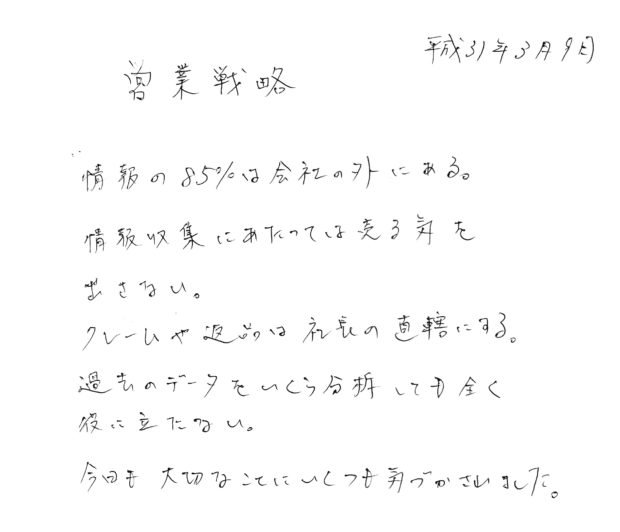 平成31年3月9日
営業戦略
情報の85%は会社の外にある。
情報収集にあたっては売る気を
出さない。
クレームや返品は社長の直轄にする。
過去のデータをいくら分析しても全く
役に立たない。
今回も大切なことにいくつも気づかされました。